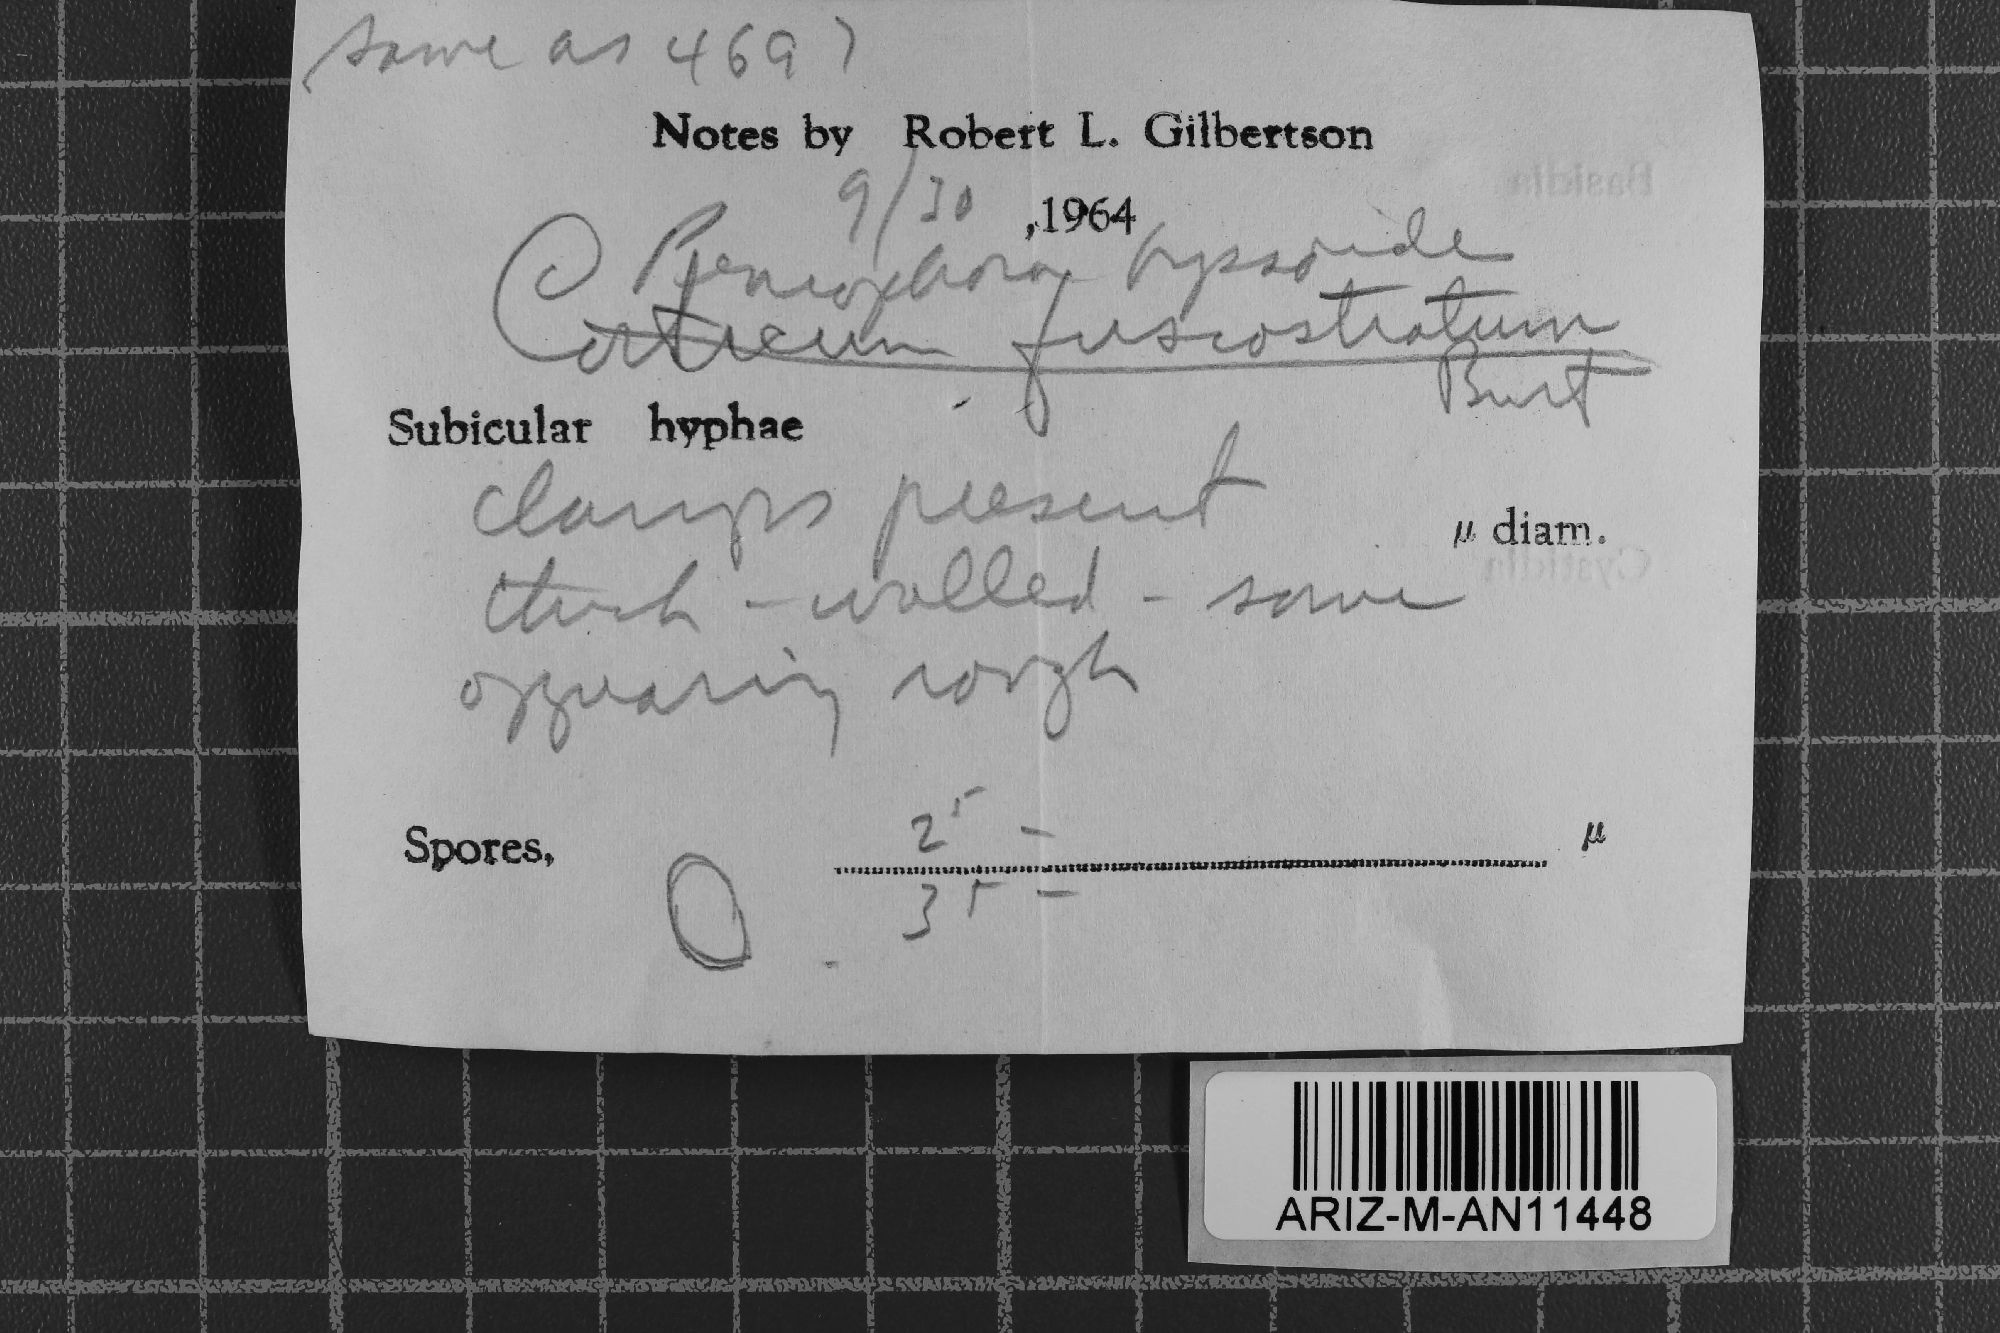 same as 469?
Notes by Robert L. Gilbertson
9/30 ,1964
Peniophora byssoide
Corticium fuscostratum
Burt
Subicular hyphae
clamps present
µ diam.
thick-walled - some
appearing rough
Spores, 25 - µ
35 -
Basidia
Cystidia
ARIZ-M-AN11448